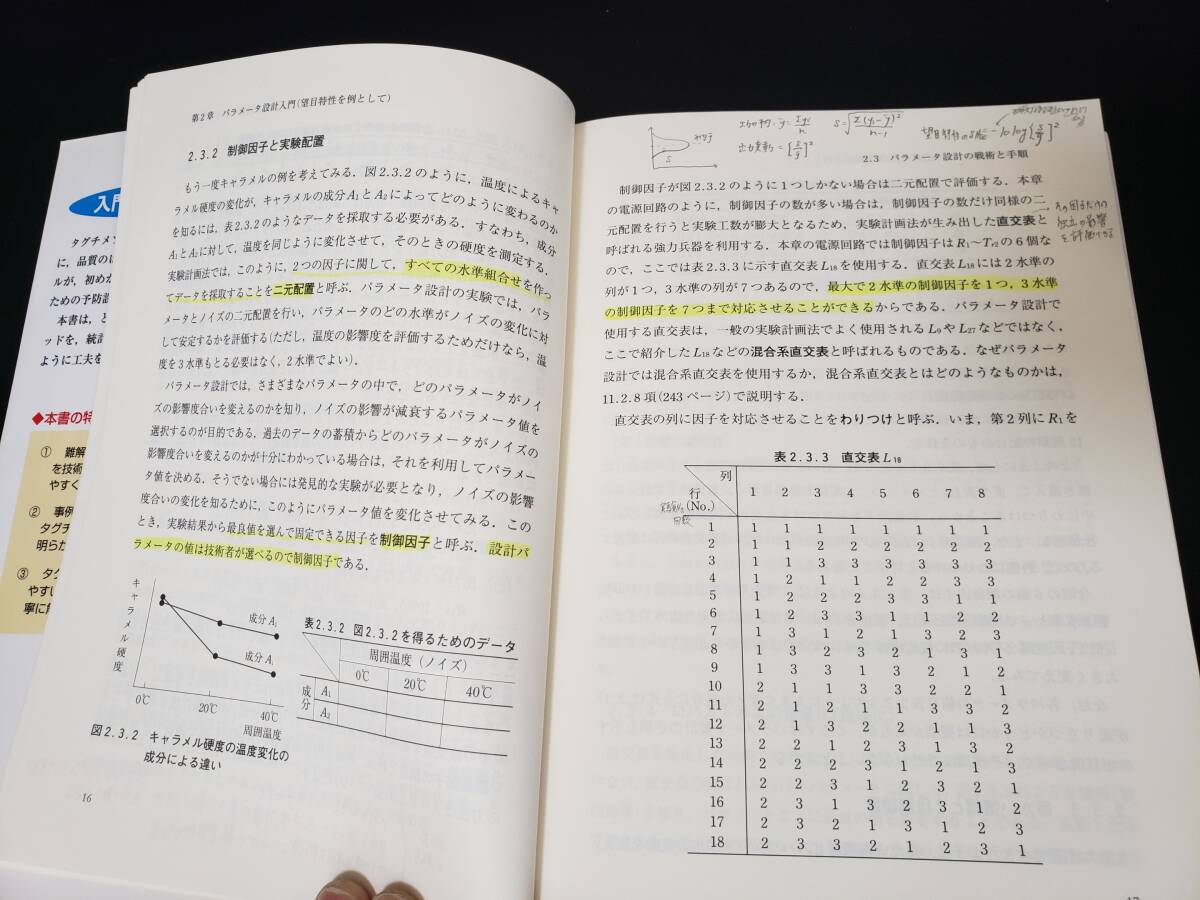 入門
タグチメソ
に，品質のば
ルが，初めか
ための予防設
本書は，と
ッドを，統計
ように工夫を
◆本書の特
① 難解
を技術
やすく
② 事例
タグチ
明らか
③ タグ
やすい
寧に
第2章 パラメータ設計入門(望目特性を例として)
2.3.2 制御因子と実験配置
もう一度キャラメルの例を考えてみる．図2.3.2のように，温度によるキャ
ラメル硬度の変化が，キャラメルの成分A₁とA₂によってどのように変わるのか
を知るには，表2.3.2のようなデータを採取する必要がある．すなわち，成分
A₁とA₂に対して，温度を同じように変化させて，そのときの硬度を測定する．
実験計画法では，このように，2つの因子に関して，すべての水準組合せを作っ
てデータを採取することを二元配置と呼ぶ．パラメータ設計の実験では，パラ
メータとノイズの二元配置を行い，パラメータのどの水準がノイズの変化に対
して安定するかを評価する(ただし，温度の影響度を評価するためだけなら，温
度を3水準もとる必要はなく，2水準でよい)．
パラメータ設計では，さまざまなパラメータの中で，どのパラメータがノイ
ズの影響度合いを変えるのかを知り，ノイズの影響が減衰するパラメータ値を
選択するのが目的である．過去のデータの蓄積からどのパラメータがノイズの
影響度合いを変えるのかが十分にわかっている場合は，それを利用してパラメー
タ値を決める．そうでない場合には発見的な実験が必要となり，ノイズの影響
度合いの変化を知るために，このようにパラメータ値を変化させてみる．この
とき，実験結果から最良値を選んで固定できる因子を制御因子と呼ぶ．設計パ
ラメータの値は技術者が選べるので制御因子である．
キャラメル硬度
成分 A₂
成分 A₁
0℃ 20℃ 40℃
周囲温度
図2.3.2 キャラメル硬度の温度変化の
成分による違い
表2.3.2 図2.3.2を得るためのデータ
周囲温度（ノイズ）
0℃ 20℃ 40℃
成分 A₁
A₂
16
2.3 パラメータ設計の戦術と手順
制御因子が図2.3.2のように1つしかない場合は二元配置で評価する．本章
の電源回路のように，制御因子の数が多い場合は，制御因子の数だけ同様の二
元配置を行うと実験工数が膨大となるため，実験計画法が生み出した直交表と
呼ばれる強力兵器を利用する．本章の電源回路では制御因子はR₁～Tr₂の6個な
ので，ここでは表2.3.3に示す直交表L₁₈を使用する．直交表L₁₈には2水準の
列が1つ，3水準の列が7つあるので，最大で2水準の制御因子を1つ，3水準
の制御因子を7つまで対応させることができるからである．パラメータ設計で
使用する直交表は，一般の実験計画法でよく使用されるL₉やL₂₇などではなく，
ここで紹介したL₁₈などの混合系直交表と呼ばれるものである．なぜパラメータ
設計では混合系直交表を使用するか，混合系直交表とはどのようなものかは，
11.2.8項(243ページ)で説明する．
直交表の列に因子を対応させることをわりつけと呼ぶ．いま，第2列にR₁を
表2.3.3 直交表L₁₈
列
行
(No.) 1 2 3 4 5 6 7 8
1 1 1 1 1 1 1 1 1
2 1 1 2 2 2 2 2 2
3 1 1 3 3 3 3 3 3
4 1 2 1 1 2 2 3 3
5 1 2 2 2 3 3 1 1
6 1 2 3 3 1 1 2 2
7 1 3 1 2 1 3 2 3
8 1 3 2 3 2 1 3 1
9 1 3 3 1 3 2 1 2
10 2 1 1 3 3 2 2 1
11 2 1 2 1 1 3 3 2
12 2 1 3 2 2 1 1 3
13 2 2 1 2 3 1 3 2
14 2 2 2 3 1 2 1 3
15 2 2 3 1 2 3 2 1
16 2 3 1 3 2 3 1 2
17 2 3 2 1 3 1 2 3
18 2 3 3 2 1 2 3 1